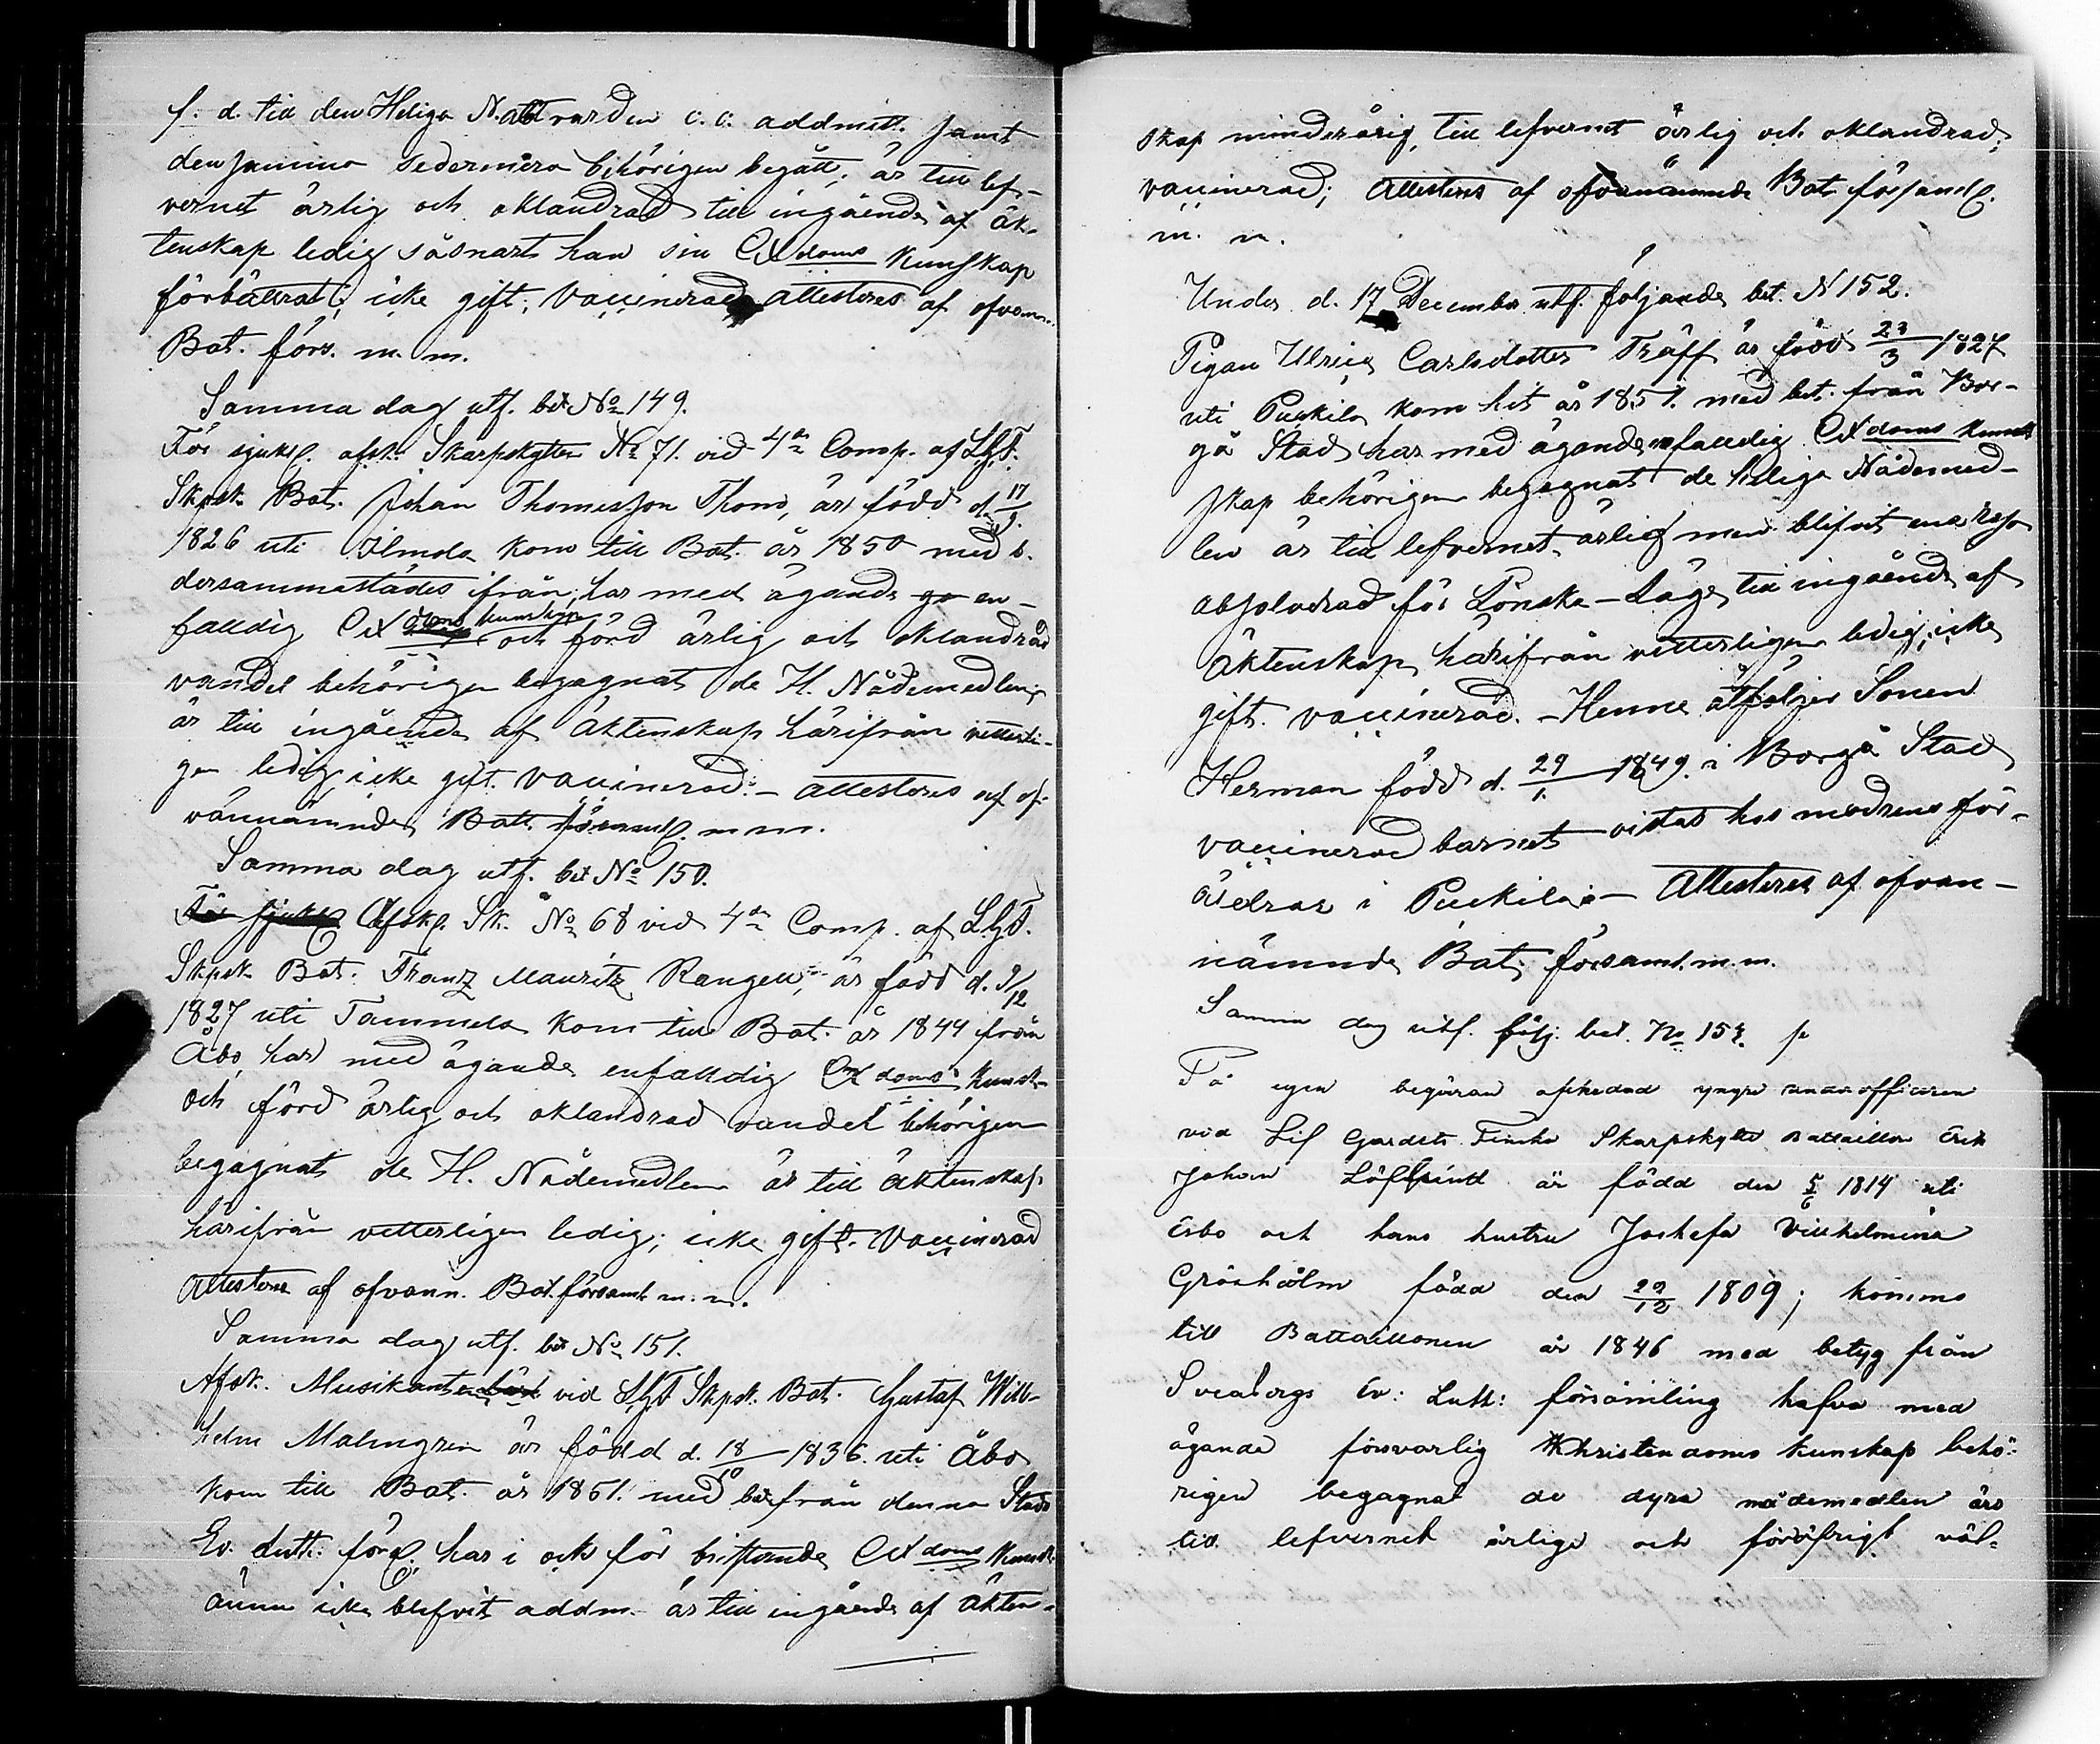 f. d. till den Heliga Nattvarden c. a. addmitt. samt
densamma sedermera behörigen begått, är till lef-
vernet ärlig och oklandrad till ingående af äk-
tenskap ledig såsnart han sin Ch doms kunskap
förbättrat; icke gift; vaccinerad attesteras af ofvann.
Bat. förs. m. m.
Samma dag utf. bet No 149.
För sjukl. afsk. Skarpskytten No 71. vid 4de Comp. af L.G.F.
Skpsk. Bat. Johan Thomesson Thoms, är född d. 17/9.
1826 uti kom till Bat. år 1850 med b.
dersammastädes ifrån, har med ägande en-
falldig Ch doms kunskap och förd ärlig och oklandrad
vandel behörigen begagnat de H. Nådemedlen
är till ingående af äktenskap härifrån vetterli-
gen ledig, icke gift. vaccinerad. - attesteras af of-
vannämnde Batt. församl. m m.
Samma dag utf. bet No 150.
För sjukl. Afsk. Sk. No 68 vid 4de Comp. af L.G.F.
Skpsk. Bat. Frantz Mauritz Rangell, är född d. 9/12
1827 uti Tammela kom till Bat. år 1844 från
Åbo, har med ägande enfalldig Ch doms kunsk-
och förd ärlig och oklandrad vandel behörigen
begagnat de H. Nådemedlen är till äktenskap
härifrån vetterligen ledig; icke gift. vaccinerad
attesteras af ofvann. Bat. församl. m. m.
Samma dag utf. bet No 151.
Afsk. Musikant vid LGF Skpsk. Bat. Gustaf Will-
helm Malmgren är född d. 18/10 1836. uti Åbo
kom till Bat. år 1851. med bet från denna Stads
Ev. Luth. förs. har i och för bristande Ch doms kunsk.
ännu icke blefvit addm. är till ingående af äkten-
skap minderårig, till lefvernet ärlig och oklandrad;
vaccinerad; attesteras af ofvannämnde Bat. församl.
m. m.
Under d. 17 December utf. följande bet. N 152.
Pigan Ulrica Carlsdotter Träff är född 23/3 1827
uti Puckila kom hit år 1851. med bet. från Bor-
gå Stad har med ägande enfalldig Ch doms kunsk
skap behörigen begagnat de heliga Nådemed-
len är till lefvernet ärlig men blifvit ena resa
absolverad för Lönska-Läge, till ingående af
äktenskap härifrån vetterligen ledig; icke
gift. vaccinerad. - Henne åtföljer Sonen
Herman född d. 29/1. 1849. i Borgå Stad
vaccinerad barnet vistas hos modrens för-
äldrar i Puckila; - Attesteras af ofvan-
nämnde Bat. församl. m. m.
Samma dag utf. följ. bet. No 153.
På egen begäran afskedad yngre underofficeren
vid Lif Gardets Finska Skarpskytte Battaillon Erik
Johan är född den 5/6 1814 uti
Esbo och hans hustru Joshefa Villhelmina
Grönholm född den 22/12 1809; komma
till Battaillonen år 1846 med betyg från
Sveaborgs Ev: Luth: församling hafva med
ägande försvarlig Khristendoms kunskap behö-
rigen begagnat de dyra nådemedlen äro
till lefvernet ärliga och föröfrigt väl-